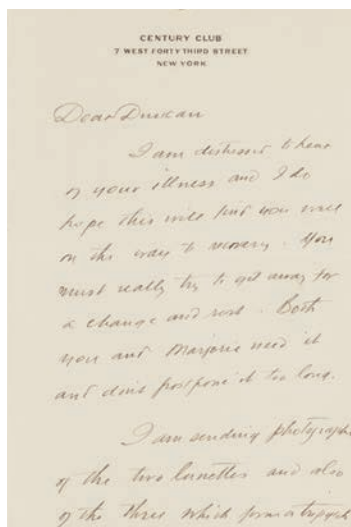 CENTURY CLUB
7 WEST FORTY THIRD STREET
NEW YORK
Dear Duncan
I am distressed to hear
of your illness and I do
hope this will find you well
on the way to recovery. You
must really try to get away for
a change and rest. Both
you and Marjorie need it
and don't postpone it too long.
I am sending photographs
of the two lunettes and also
of the three which form a triptych